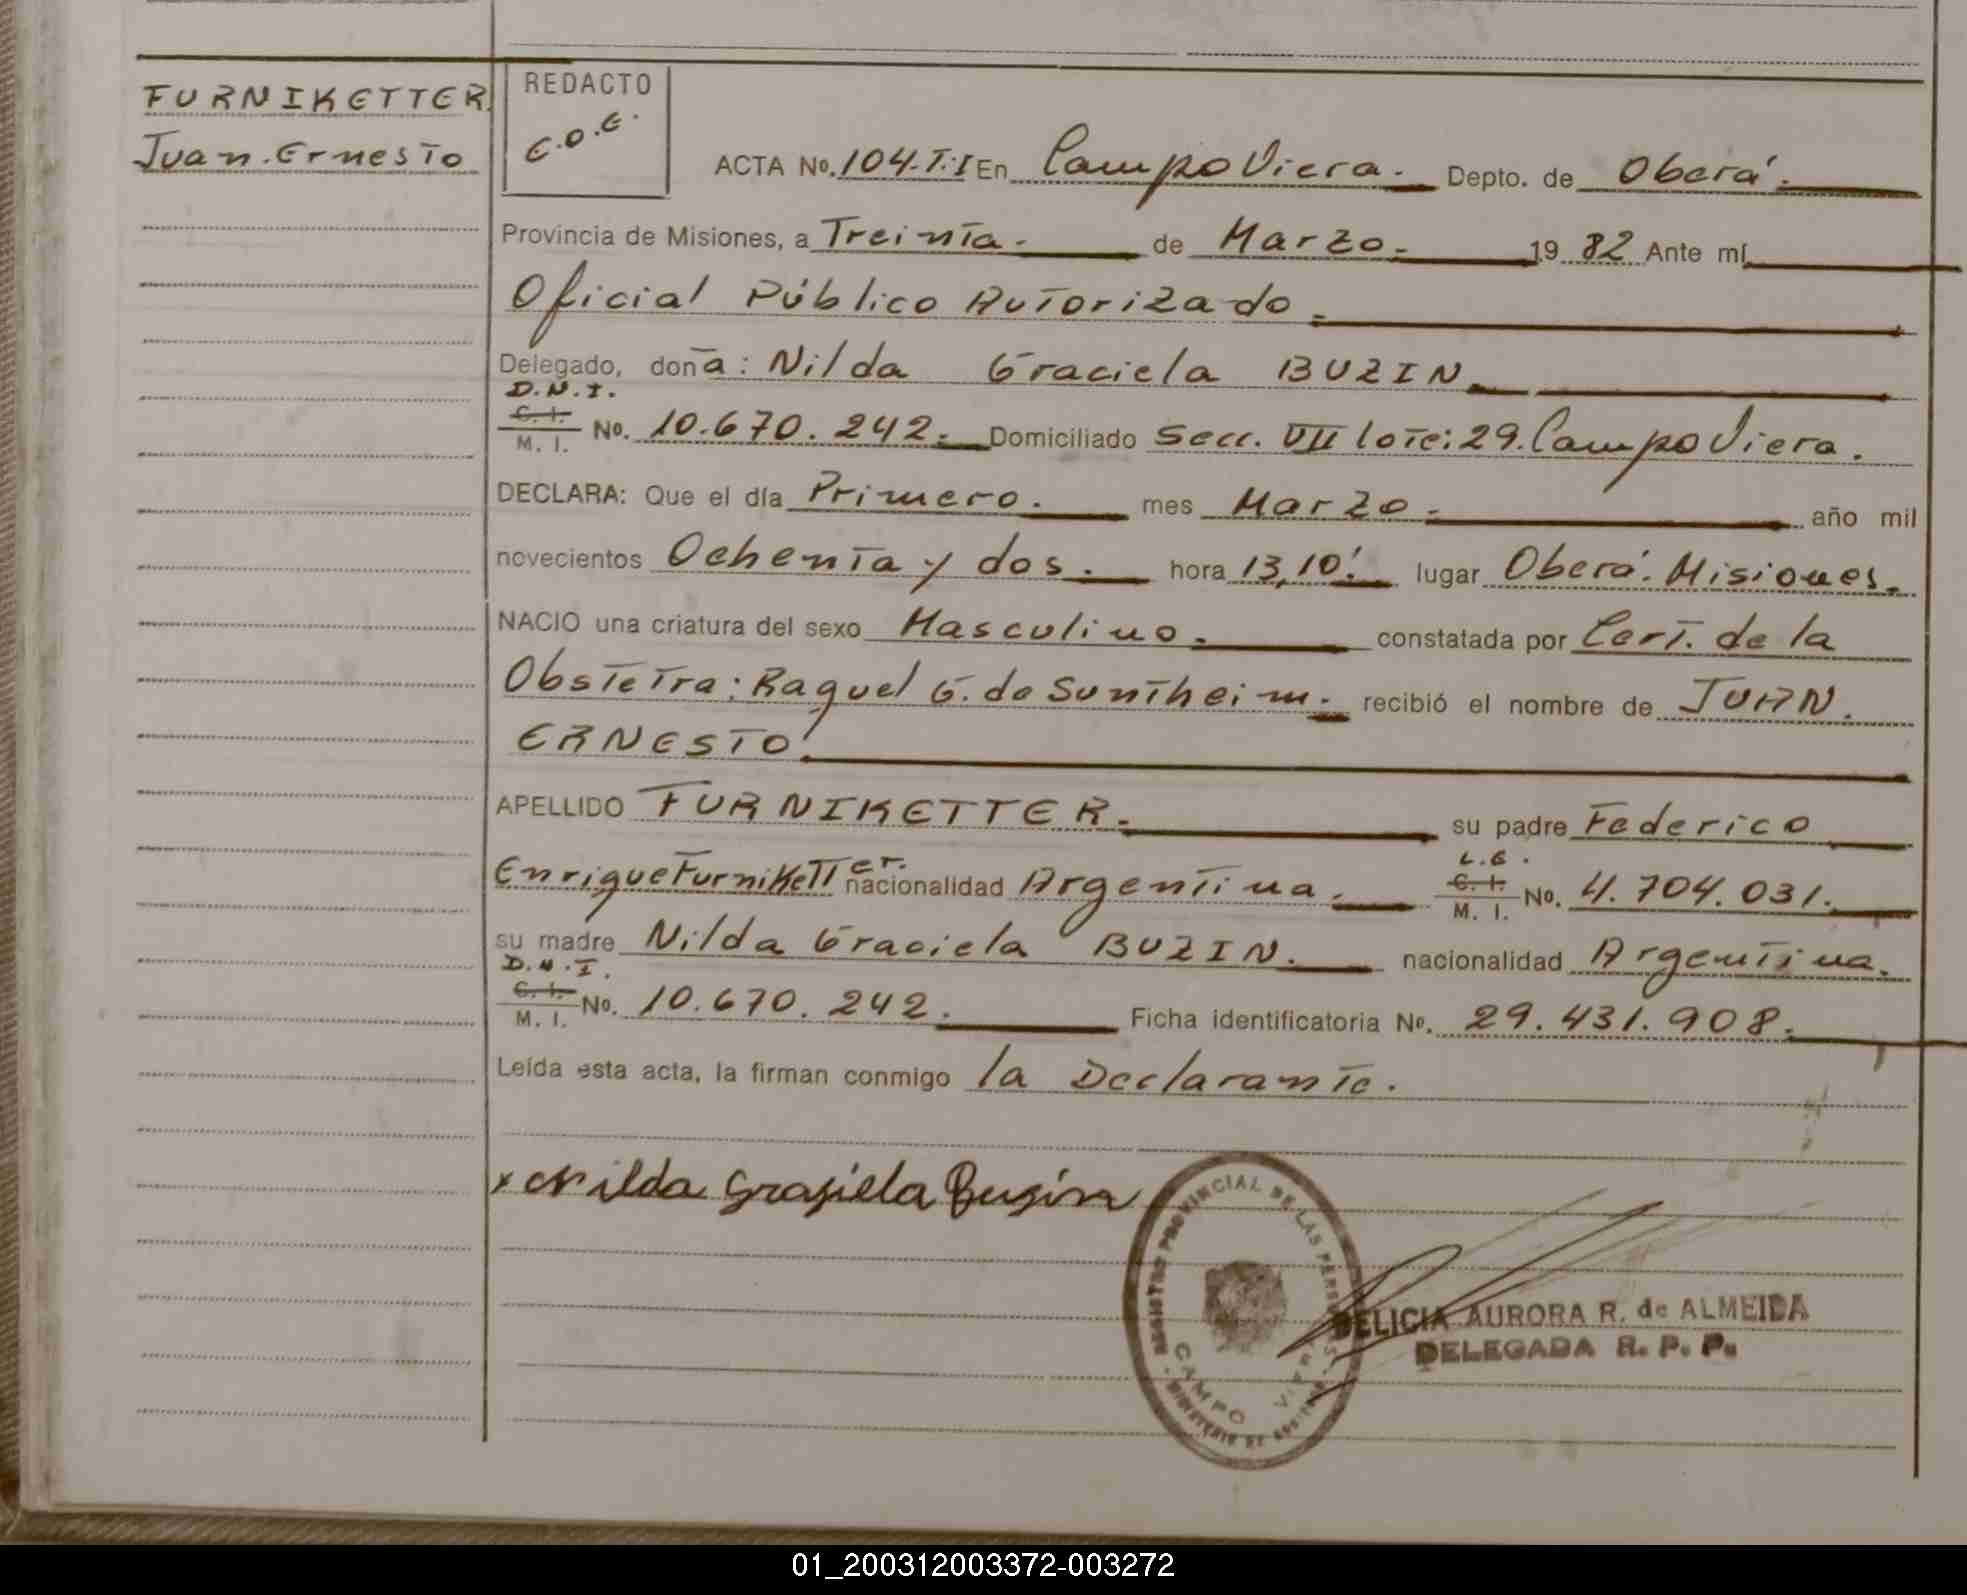 FURNIKETTER
Juan Ernesto
REDACTO
C.O.E.
ACTA No. 104-T.I En Campo Viera. Depto. de Oberá.
Provincia de Misiones, a Treinta. de Marzo. 1982 Ante mí
Oficial Público Autorizado.
Delegado, doña: Nilda Graciela BUZIN
D.N.I.
C. I.
M. I. No. 10.670.242. Domiciliado Secc. VII lote: 29. Campo Viera.
DECLARA: Que el día Primero. mes Marzo. año mil
novecientos Ochenta y dos. hora 13,10' lugar Oberá. Misiones.
NACIO una criatura del sexo Masculino. constatada por Cert. de la
Obstetra: Raquel G. de Suntheim. recibió el nombre de JUAN
ERNESTO
APELLIDO FURNIKETTER. su padre Federico
Enrique Furniketter. nacionalidad Argentina. L.E. C. I. M. I. No. 4.704.031.
su madre Nilda Graciela BUZIN. nacionalidad Argentina.
D.N.I.
C. I.
M. I. No. 10.670.242. Ficha identificatoria No. 29.431.908.
Leída esta acta, la firman conmigo la Declarante.
x Nilda Grasiela Busin
REGISTRO PROVINCIAL DE LAS PERSONAS
CAMPO VIERA
DELICIA AURORA R. de ALMEIDA
DELEGADA R. P. P.
01_200312003372-003272